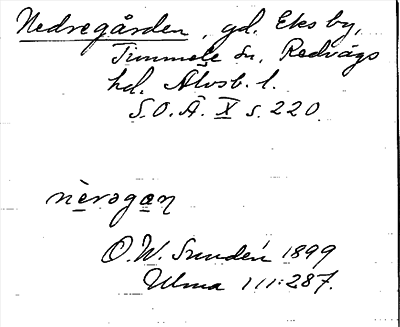 Nedregården, gd. Eksby,
Timmele sn, Redvägs
hd. Älvsb. l.
S.O.Ä. X s. 220
nèrəgɑn
O.W. Sundén 1899
Ulma 111:287.